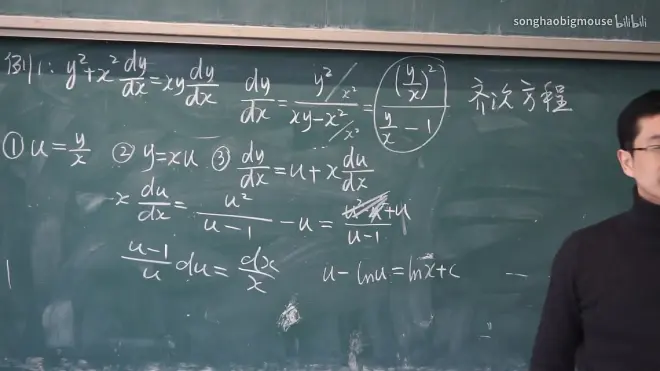 songhaobigmouse bilibili
例1: y²+x² dy/dx = xy dy/dx  dy/dx = (y²/x²)/((xy-x²)/x²) = (y/x)²/(y/x - 1)  齐次方程
① u = y/x  ② y=xu  ③ dy/dx = u + x du/dx
x du/dx = u²/(u-1) - u = +u/(u-1)
(u-1)/u du = dx/x  u - lnu = lnx + c